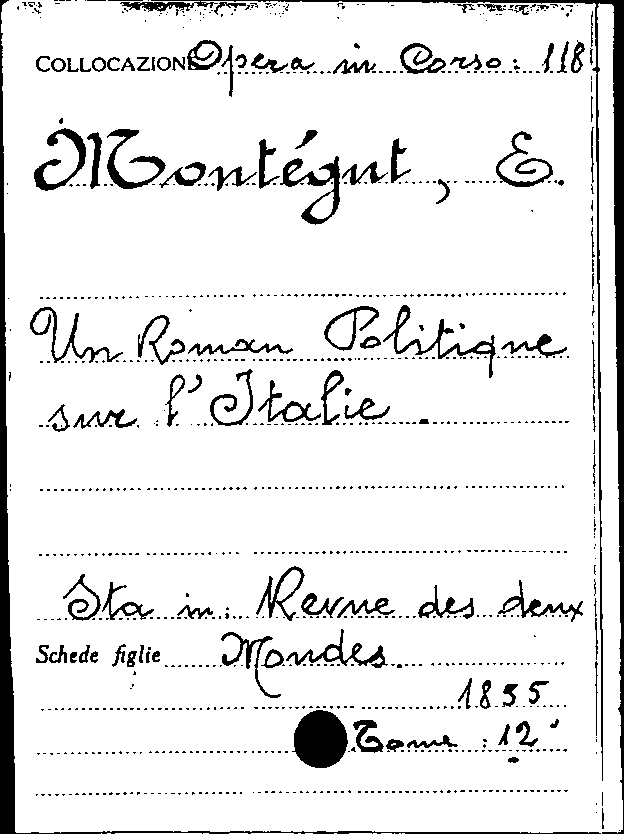 COLLOCAZIONE Opera in Corso: 118.
Montégut, E.
Un Roman Politique
sur l'Italie.
Sta in: Revue des deux
Schede figlie Mondes.
1855
Tome: 12°